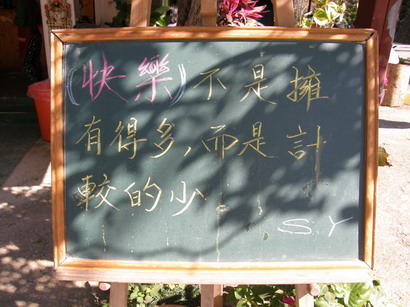 《快樂》不是擁
有得多，而是計
較的少
S.Y